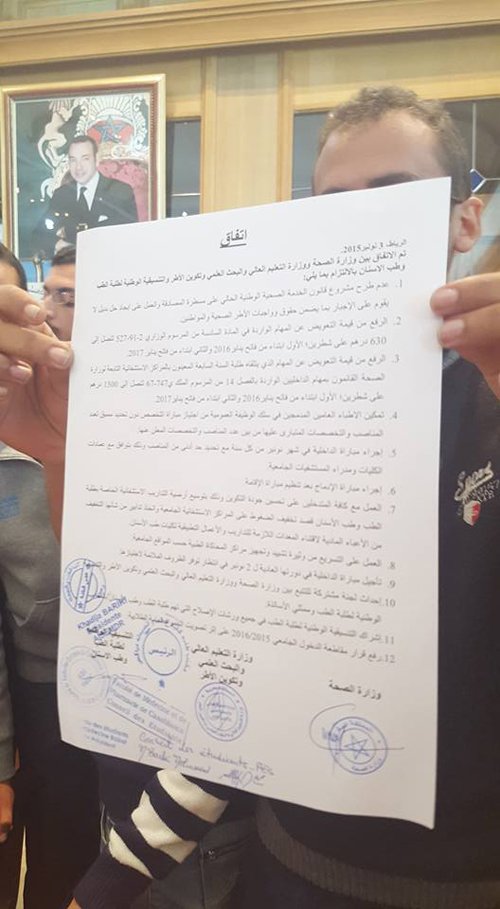 اتفاق
الرباط، 3 نونبر 2015.
تم الاتفاق بين وزارة الصحة ووزارة التعليم العالي والبحث العلمي وتكوين الأطر والتنسيقية الوطنية لطلبة الطب
وطب الأسنان بالالتزام بما يلي:
1. عدم طرح مشروع قانون الخدمة الصحية الوطنية الحالي على مسطرة المصادقة والعمل على ايجاد حل بديل لا
يقوم على الإجبار بما يضمن حقوق وواجبات الأطر الصحية والمواطنين
2. الرفع من قيمة التعويض عن المهام الواردة في المادة السادسة من المرسوم الوزاري 2-91-527 لتصل الى
630 درهم على شطرين؛ الأول ابتداء من فاتح يناير 2016 والثاني ابتداء من فاتح يناير 2017.
3. الرفع من قيمة التعويض عن المهام الذي يتلقاه طلبة السنة السابعة المعينون بالمراكز الاستشفائية التابعة لوزارة
الصحة القائمون بمهام الداخليين الواردة بالفصل 14 من المرسوم الملكي 67-747 لتصل الى 1500 درهم
على شطرين؛ الأول ابتداء من فاتح يناير 2016 والثاني ابتداء من فاتح يناير 2017.
4. تمكين الأطباء العامين المدمجين في سلك الوظيفة العمومية من اجتياز مباراة التخصص دون تحديد مسبق لعدد
المناصب والتخصصات المتبارى عليها من بين عدد المناصب والتخصصات المعلن عنها.
5. إجراء مباراة الداخلية في شهر نونبر من كل سنة مع تحديد حد أدنى من المناصب وذلك بتوافق مع عمادات
الكليات ومدراء المستشفيات الجامعية.
6. إجراء مباراة الإدماج بعد تنظيم مباراة الإقامة
7. العمل مع كافة المتدخلين على تحسين جودة التكوين وذلك بتوسيع أرضية التداريب الاستشفائية الخاصة بطلبة
الطب وطب الأسنان قصد تخفيف الضغوط على المراكز الاستشفائية الجامعية واتخاذ تدابير من شأنها التخفيف
من الأعباء المادية لاقتناء المعدات اللازمة للتداريب والأعمال التطبيقية لكليات طب الأسنان.
8. العمل على التسريع من وثيرة تشييد وتجهيز مراكز المحاكاة الطبية حسب المواقع الجامعية
9. تأجيل مباراة الداخلية في دورتها العادية ل 2 نونبر في انتظار توفر الظروف الملائمة لاجتيازها.
10. إحداث لجنة مشتركة للتتبع بين وزارة الصحة ووزارة التعليم العالي والبحث العلمي وتكوين الأطر والتنسيقية
الوطنية لطلبة الطب وممثلي الأساتذة.
11. إشراك التنسيقية الوطنية لطلبة الطب في جميع ورشات الإصلاح التي تهم طلبة الطب وطب
12. رفع قرار مقاطعة الدخول الجامعي 2016/2015 على إثر تصويت
وزارة الصحة
وزارة التعليم العالي
والبحث العلمي
وتكوين الأطر
التنسيقية الوطنية
لطلبة الطب
وطب الأسنان
Khadija BARIK
Présidente
الرئيس
Faculté de Médecine et de
Pharmacie de Casablanca
Conseil des Etudiants